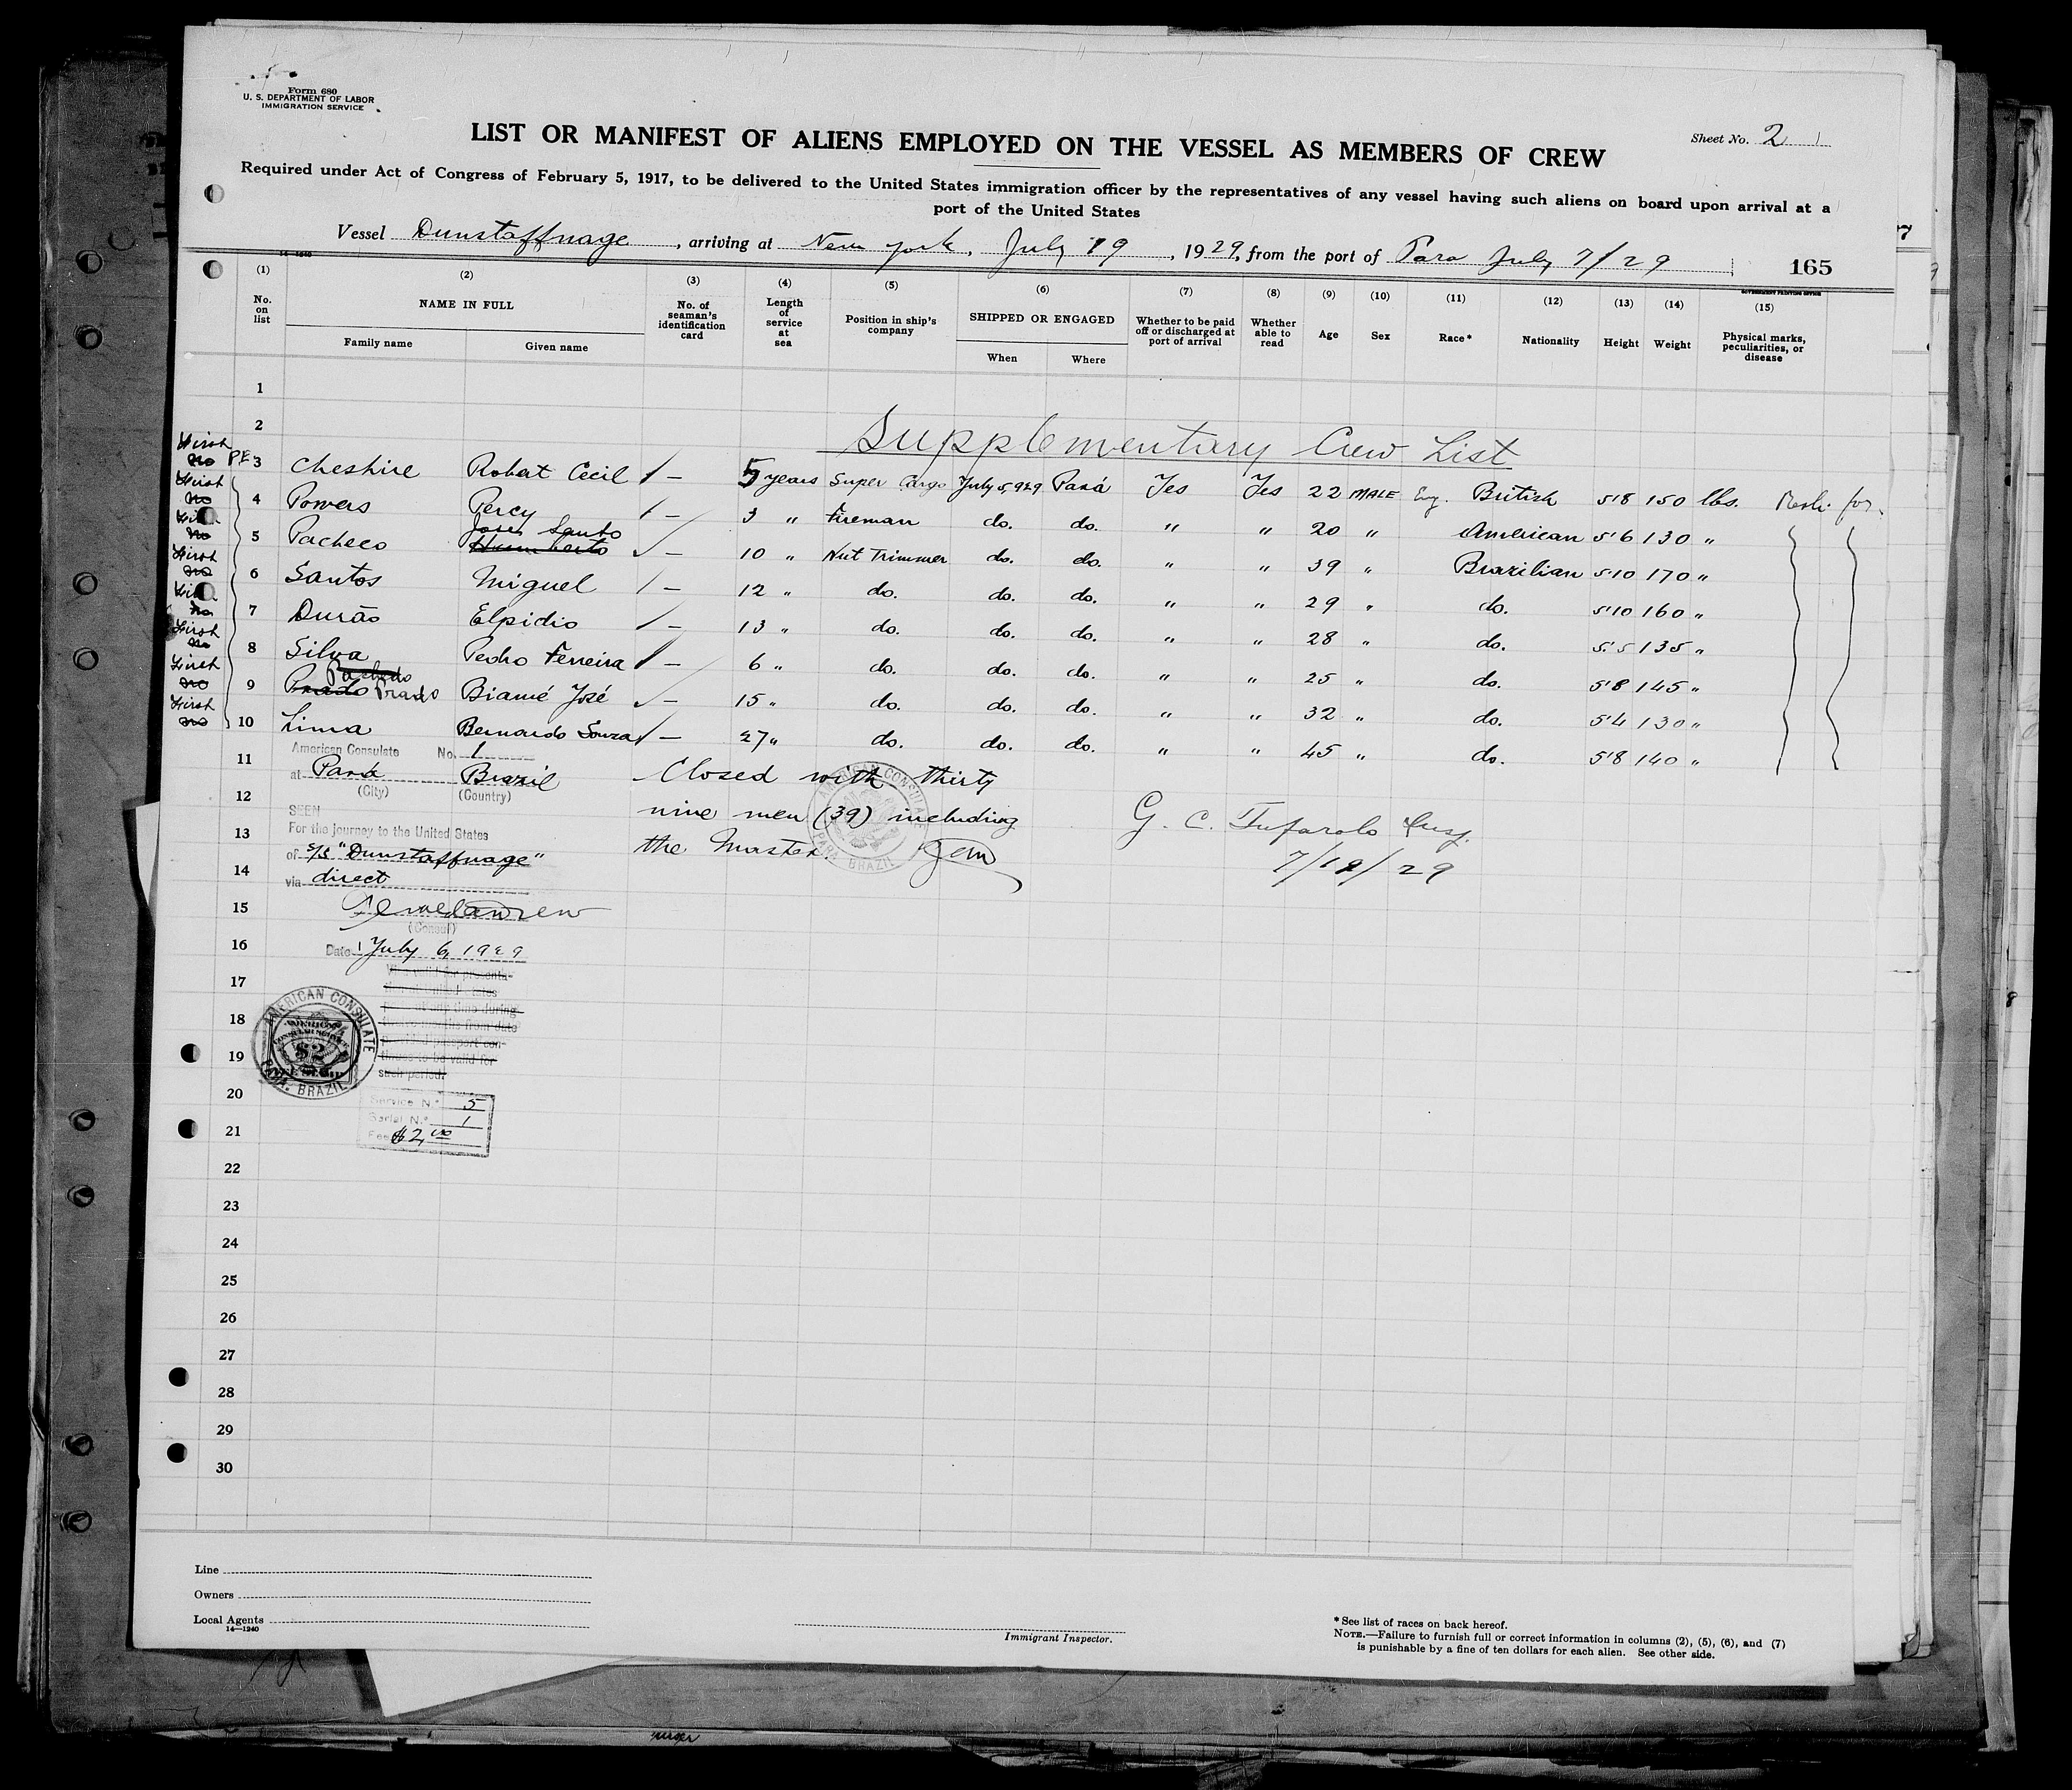 Form 680
U. S. DEPARTMENT OF LABOR
IMMIGRATION SERVICE
LIST OR MANIFEST OF ALIENS EMPLOYED ON THE VESSEL AS MEMBERS OF CREW
Sheet No. 2
Required under Act of Congress of February 5, 1917, to be delivered to the United States immigration officer by the representatives of any vessel having such aliens on board upon arrival at a
port of the United States
Vessel Dunstaffnage, arriving at New York, July 19, 1929, from the port of Para July 7/29
165
14—1240
GOVERNMENT PRINTING OFFICE
(1) (2) (3) (4) (5) (6) (7) (8) (9) (10) (11) (12) (13) (14) (15)
No. on list NAME IN FULL No. of seaman's identification card Length of service at sea Position in ship's company SHIPPED OR ENGAGED Whether to be paid off or discharged at port of arrival Whether able to read Age Sex Race* Nationality Height Weight Physical marks, peculiarities, or disease
Family name Given name When Where
1
2 Supplementary Crew List
First no PE 3 Cheshire Robert Cecil — 5 years Super Cargo July 5, 929 Pará Yes Yes 22 MALE Eng. British 5'8 150 lbs.
First no 4 Powers Percy — 3 " Fireman do. do. " " 20 " American 5'6 130 "
no 5 Pacheco Humberto José Santo — 10 " Nut Trimmer do. do. " " 39 " Brazilian 5'10 170 "
First no 6 Santos Miguel — 12 " do. do. do. " " 29 " do. 5'10 160 "
no 7 Durão Elpidio — 13 " do. do. do. " " 28 " do. 5'5 135 "
First no 8 Silva Pedro Ferreira — 6 " do. do. do. " " 25 " do. 5'8 145 "
First no 9 Prado Pacheco Prado Biamé José — 15 " do. do. do. " " 32 " do. 5'4 130 "
First no 10 Lima Bernardo Souza — 27 " do. do. do. " " 45 " do. 5'8 140 "
American Consulate No. 1
11 at Pará Brazil Closed with thirty
(City) (Country)
12 nine men (39) including
SEEN
13 For the journey to the United States the Master.
of S/S "Dunstaffnage"
G. C. Tufarolo Insp.
7/19/29
14 via direct
15
(Consul)
16 Date July 6, 1929
17 Visa valid for presenta-
18
19
such period.
AMERICAN CONSULATE
PARA, BRAZIL
$2
AMERICAN CONSULATE
PARA, BRAZIL
20 Service No. 5
Serial No. 1
21 Fee $2.00
22
23
24
25
26
27
28
29
30
Line
Owners
Local Agents
14—1240
Immigrant Inspector.
* See list of races on back hereof.
NOTE.—Failure to furnish full or correct information in columns (2), (5), (6), and (7)
is punishable by a fine of ten dollars for each alien. See other side.